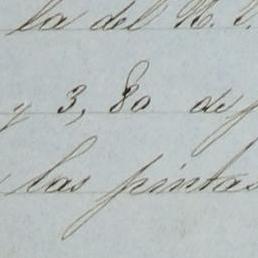 la del N.
y 3, 80 de
las pintas